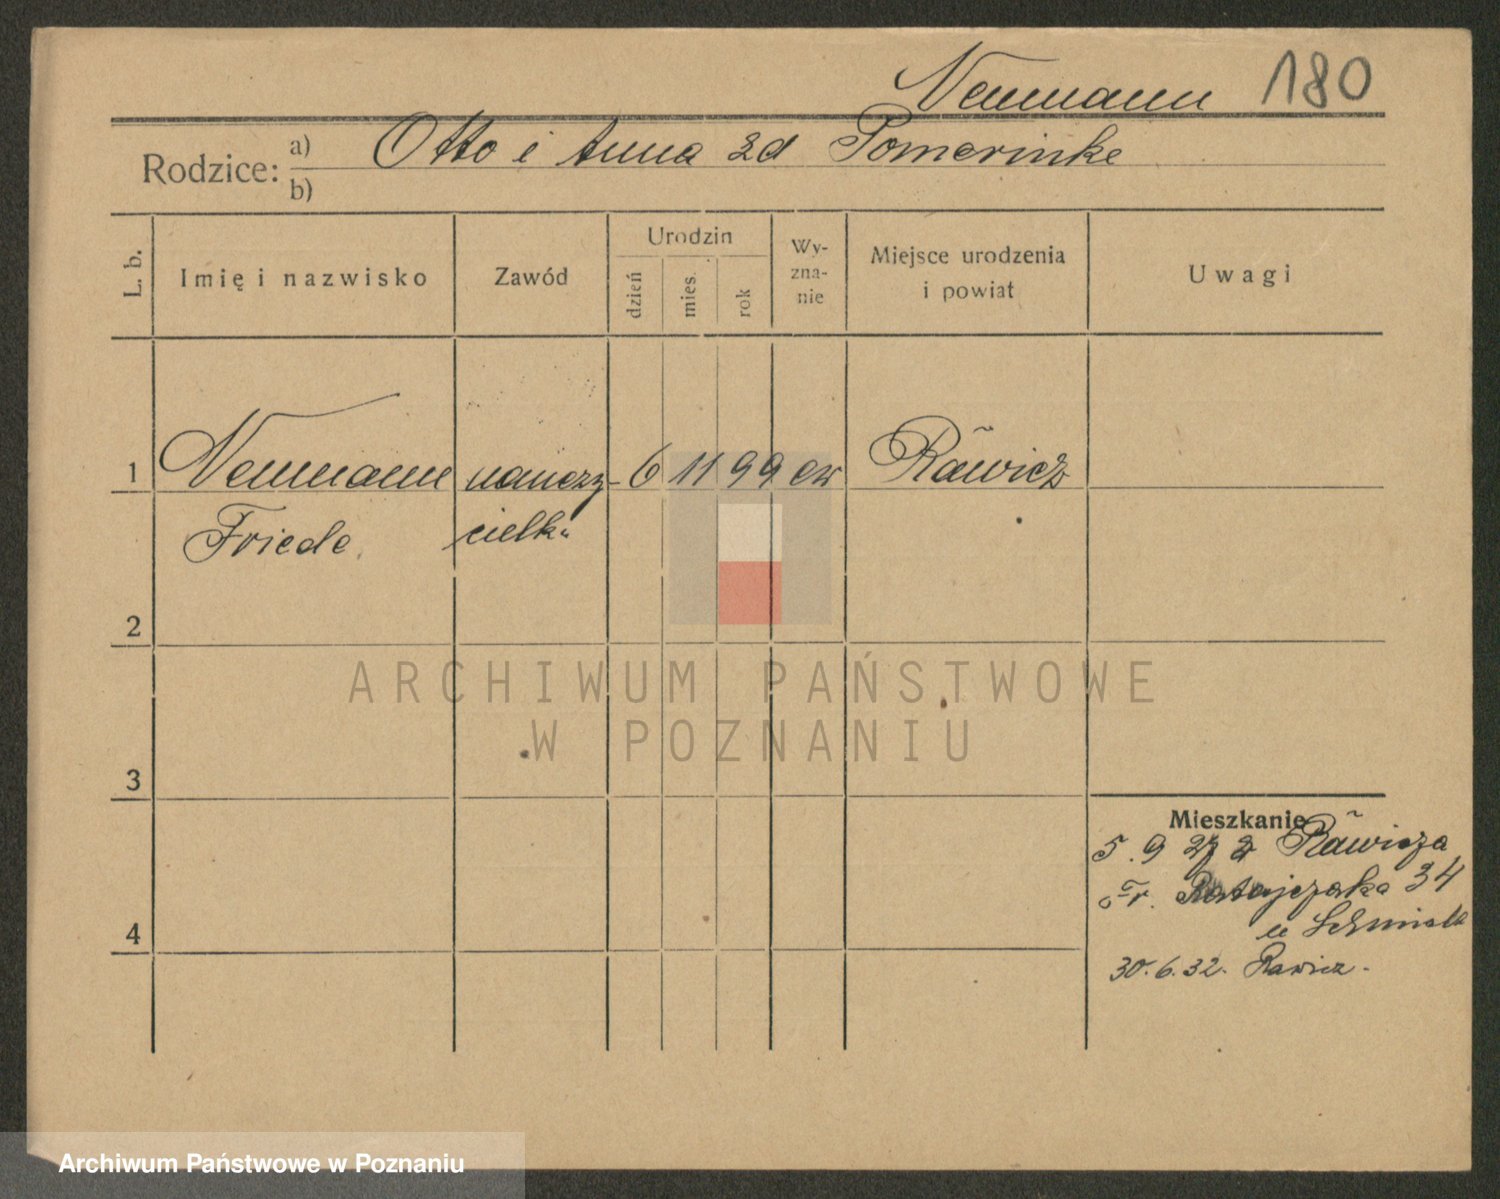 Neumann 180
Rodzice: a) Otto i Anna zd Pomerinke
b)
L. b. Imię i nazwisko Zawód Urodzin dzień mies. rok Wy-zna-nie Miejsce urodzenia i powiat Uwagi
1 Neumann nauczy- 6 11 99 ew Rawicz
Friede cielka
2
3
4
Mieszkanie
5. 9 27 z Rawicza
Fr. Ratajczaka 34
u
30.6.32. Rawicz.
ARCHIWUM PAŃSTWOWE
W POZNANIU
Archiwum Państwowe w Poznaniu